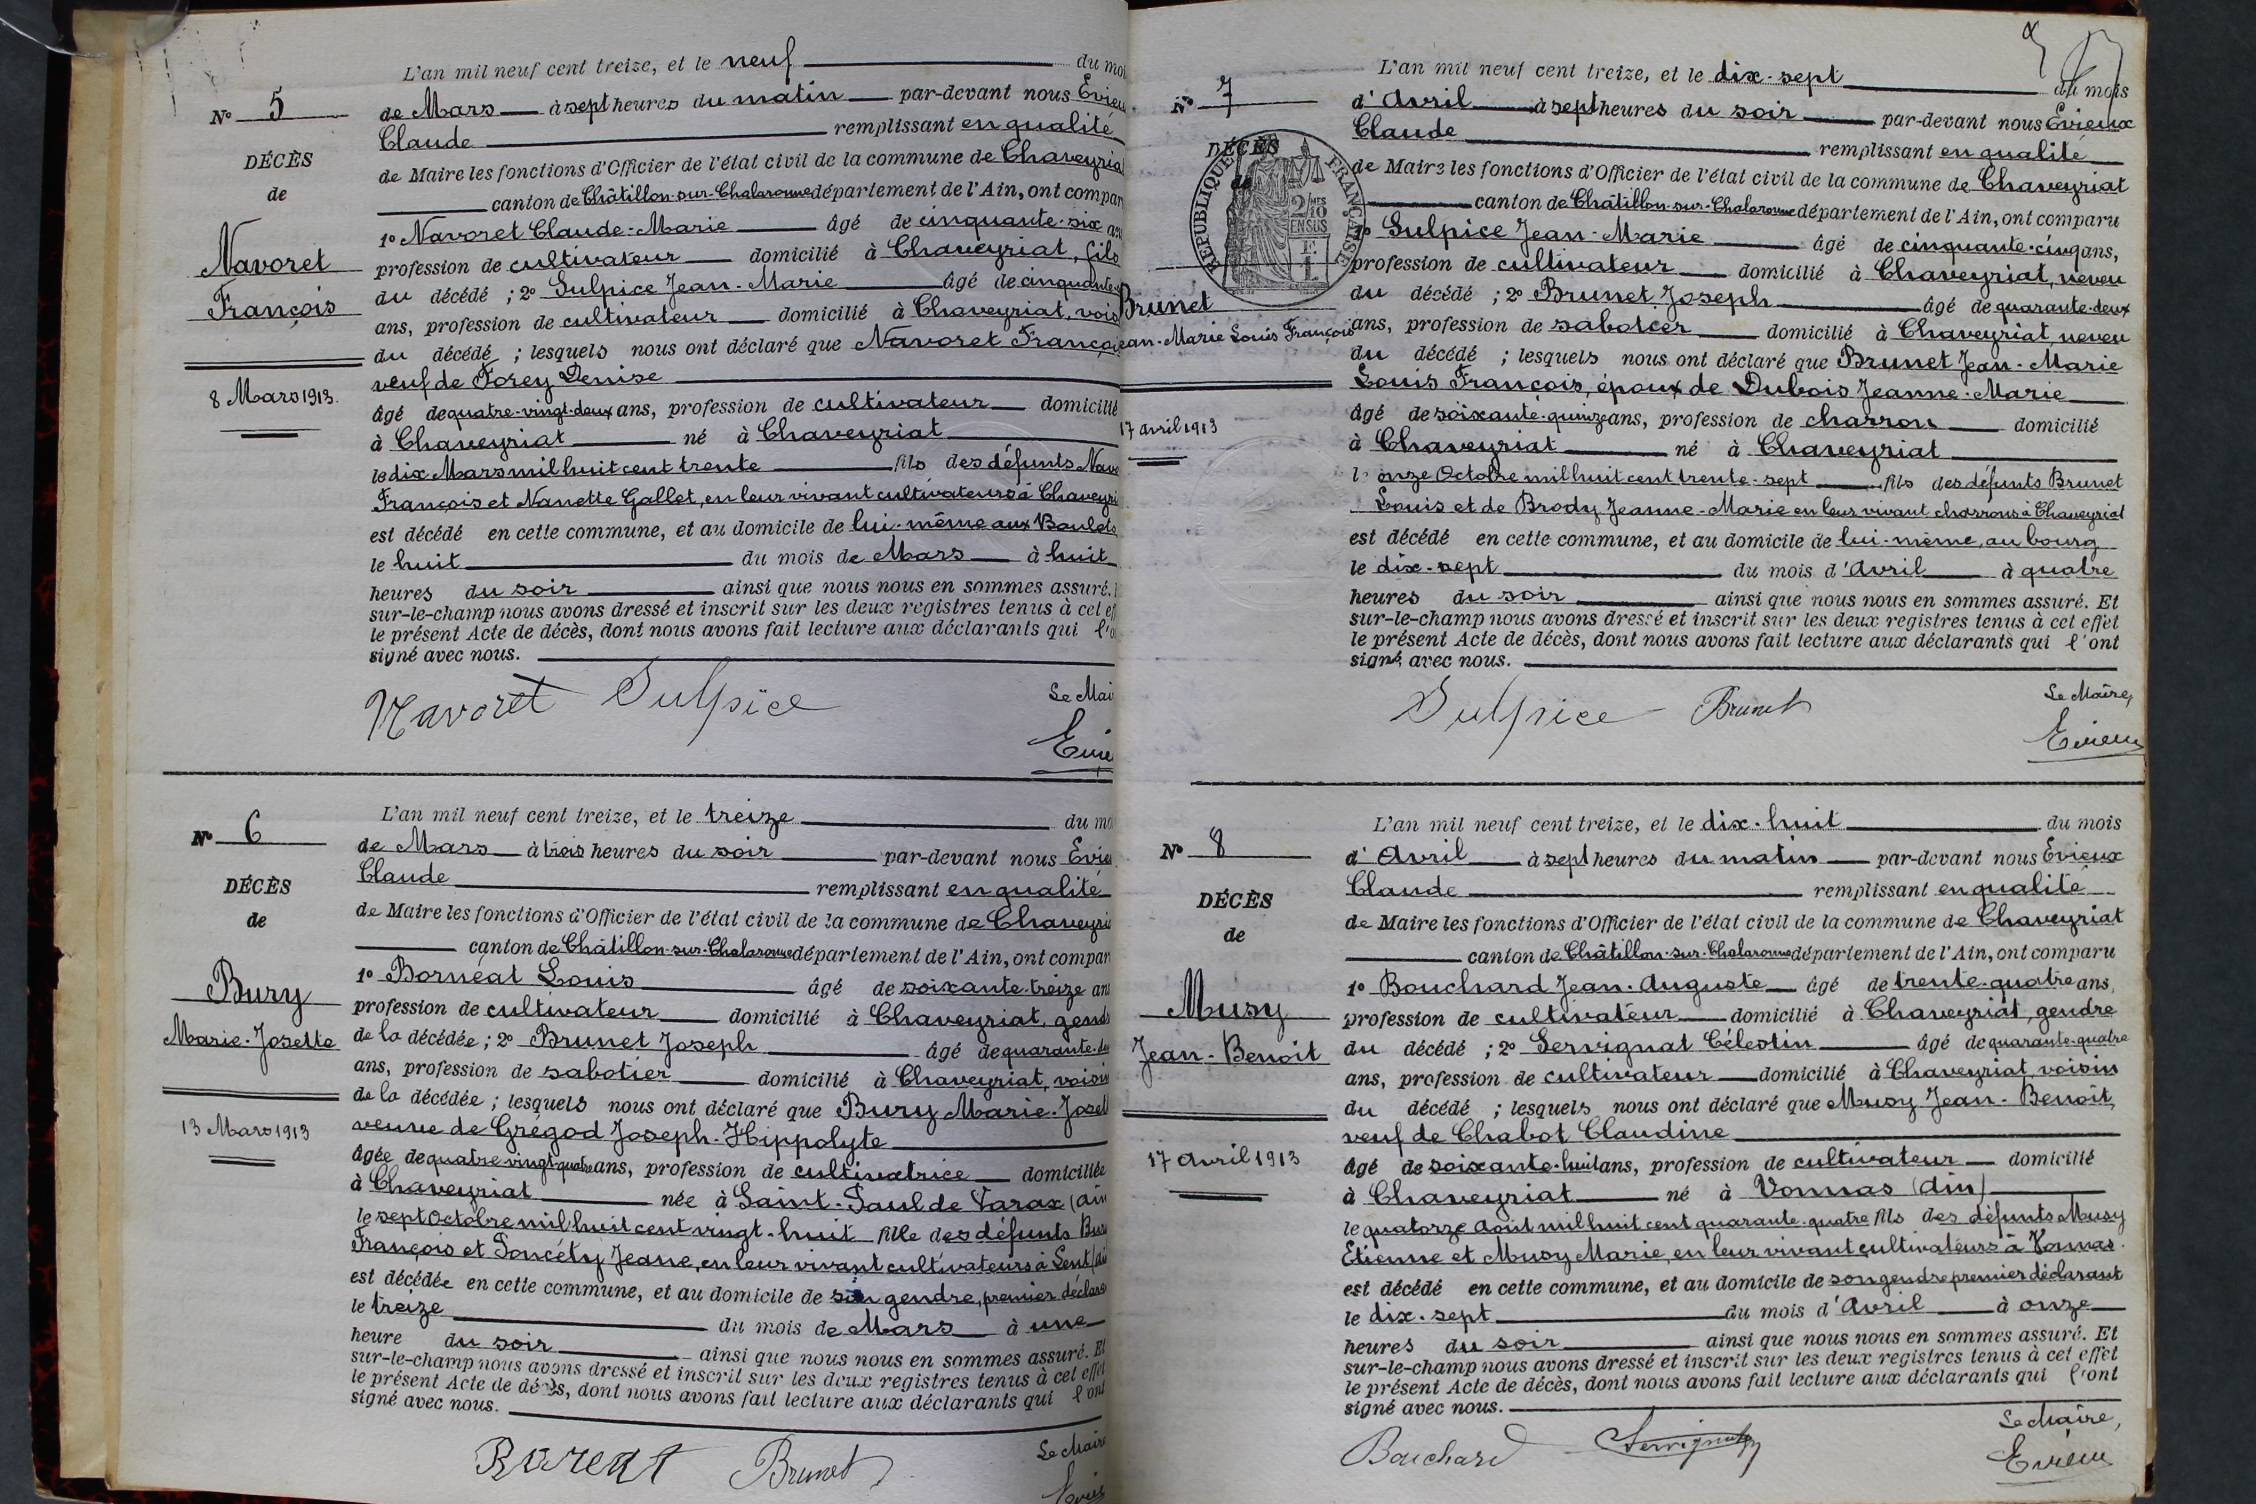 L'an mil neuf cent treize, et le neuf du moi
Nº 5
de Mars à sept heures du matin par-devant nous Evieu
Claude remplissant en qualité
DÉCÈS
de Maire les fonctions d'Officier de l'état civil de la commune de Chaveyria
de
canton de Châtillon-sur-Chalaronne département de l'Ain, ont compar
1º Navoret Claude-Marie âgé de cinquante-six an
Navoret
profession de cultivateur domicilié à Chaveyriat, fils
du décédé ; 2º Sulpice Jean-Marie âgé de cinquante
François
ans, profession de cultivateur domicilié à Chaveyriat, vois
du décédé ; lesquels nous ont déclaré que Navoret Françoi
veuf de Forey Denise
8 Mars 1913.
âgé de quatre-vingt-deux ans, profession de cultivateur domicilié
à Chaveyriat né à Chaveyriat
le dix Mars mil huit cent trente fils des défunts Navo
François et Nanette Gallet, en leur vivant cultivateurs à Chaveyri
est décédé en cette commune, et au domicile de lui-même aux Baulets
le huit du mois de Mars à huit
heures du soir ainsi que nous nous en sommes assuré.
sur-le-champ nous avons dressé et inscrit sur les deux registres tenus à cet ef
le présent Acte de décès, dont nous avons fait lecture aux déclarants qui l'o
signé avec nous.
Navoret Sulpice
Le Mai
Evie
L'an mil neuf cent treize, et le treize du mo
Nº 6
de Mars à trois heures du soir par-devant nous Evieu
Claude remplissant en qualité
DÉCÈS
de Maire les fonctions d'Officier de l'état civil de la commune de Chaveyri
de
canton de Châtillon-sur-Chalaronne département de l'Ain, ont compar
1º Bornéat Louis âgé de soixante-treize an
Bury
profession de cultivateur domicilié à Chaveyriat, gendr
Marie-Josette
de la décédée ; 2º Brunet Joseph âgé de quarante-de
ans, profession de sabotier domicilié à Chaveyriat, voisin
de la décédée ; lesquels nous ont déclaré que Bury Marie-Joset
13 Mars 1913
veuve de Grégod Joseph-Hippolyte
âgée de quatre-vingt-quatre ans, profession de cultivatrice domiciliée
à Chaveyriat née à Saint-Paul de Varax (Ain
le sept Octobre mil huit cent vingt-huit fille des défunts Bur
François et Poncéty Jeane, en leur vivant cultivateurs à Lent (Ai
est décédée en cette commune, et au domicile de son gendre, premier déclara
le treize du mois de Mars à une
heure du soir ainsi que nous nous en sommes assuré. Et
sur-le-champ nous avons dressé et inscrit sur les deux registres tenus à cet effet
le présent Acte de décès, dont nous avons fait lecture aux déclarants qui l'ont
signé avec nous.
Brunet
Le Maire
Evieu
L'an mil neuf cent treize, et le dix-sept du mois
Nº 7
d'Avril à sept heures du soir par-devant nous Evieux
Claude remplissant en qualité
DÉCÈS
de Maire les fonctions d'Officier de l'état civil de la commune de Chaveyriat
de
RÉPUBLIQUE FRANÇAISE
2/10 EN SUS
canton de Châtillon-sur-Chalaronne département de l'Ain, ont comparu
1º Sulpice Jean-Marie âgé de cinquante-cinq ans,
profession de cultivateur domicilié à Chaveyriat, neveu
Brunet
du décédé ; 2º Brunet Joseph âgé de quarante-deux
ean-Marie Louis François
ans, profession de sabotier domicilié à Chaveyriat, neveu
du décédé ; lesquels nous ont déclaré que Brunet Jean-Marie
Louis François, époux de Dubois Jeanne-Marie
17 avril 1913
âgé de soixante-quinze ans, profession de charron domicilié
à Chaveyriat né à Chaveyriat
l' onze Octobre mil huit cent trente-sept fils des défunts Brunet
Louis et de Brody Jeanne-Marie en leur vivant charrons à Chaveyriat
est décédé en cette commune, et au domicile de lui-même, au bourg
le dix-sept du mois d'Avril à quatre
heures du soir ainsi que nous nous en sommes assuré. Et
sur-le-champ nous avons dressé et inscrit sur les deux registres tenus à cet effet
le présent Acte de décès, dont nous avons fait lecture aux déclarants qui l'ont
signé avec nous.
Sulpice Brunet
Le Maire,
Evieux
L'an mil neuf cent treize, et le dix-huit du mois
Nº 8
d'Avril à sept heures du matin par-devant nous Evieux
Claude remplissant en qualité
DÉCÈS
de Maire les fonctions d'Officier de l'état civil de la commune de Chaveyriat
de
canton de Châtillon-sur-Chalaronne département de l'Ain, ont comparu
1º Bouchard Jean-Auguste âgé de trente-quatre ans,
Musy
profession de cultivateur domicilié à Chaveyriat, gendre
Jean-Benoit
du décédé ; 2º Servignat Célestin âgé de quarante-quatre
ans, profession de cultivateur domicilié à Chaveyriat, voisin
du décédé ; lesquels nous ont déclaré que Musy Jean-Benoît,
veuf de Chabot Claudine
17 Avril 1913
âgé de soixante-huit ans, profession de cultivateur domicilié
à Chaveyriat né à Vonnas (Ain)
le quatorze Août mil huit cent quarante-quatre fils des défunts Musy
Etienne et Musy Marie, en leur vivant cultivateurs à Vonnas.
est décédé en cette commune, et au domicile de son gendre premier déclarant
le dix-sept du mois d'Avril à onze
heures du soir ainsi que nous nous en sommes assuré. Et
sur-le-champ nous avons dressé et inscrit sur les deux registres tenus à cet effet
le présent Acte de décès, dont nous avons fait lecture aux déclarants qui l'ont
signé avec nous.
Bouchard Servignat
Le Maire,
Evieux